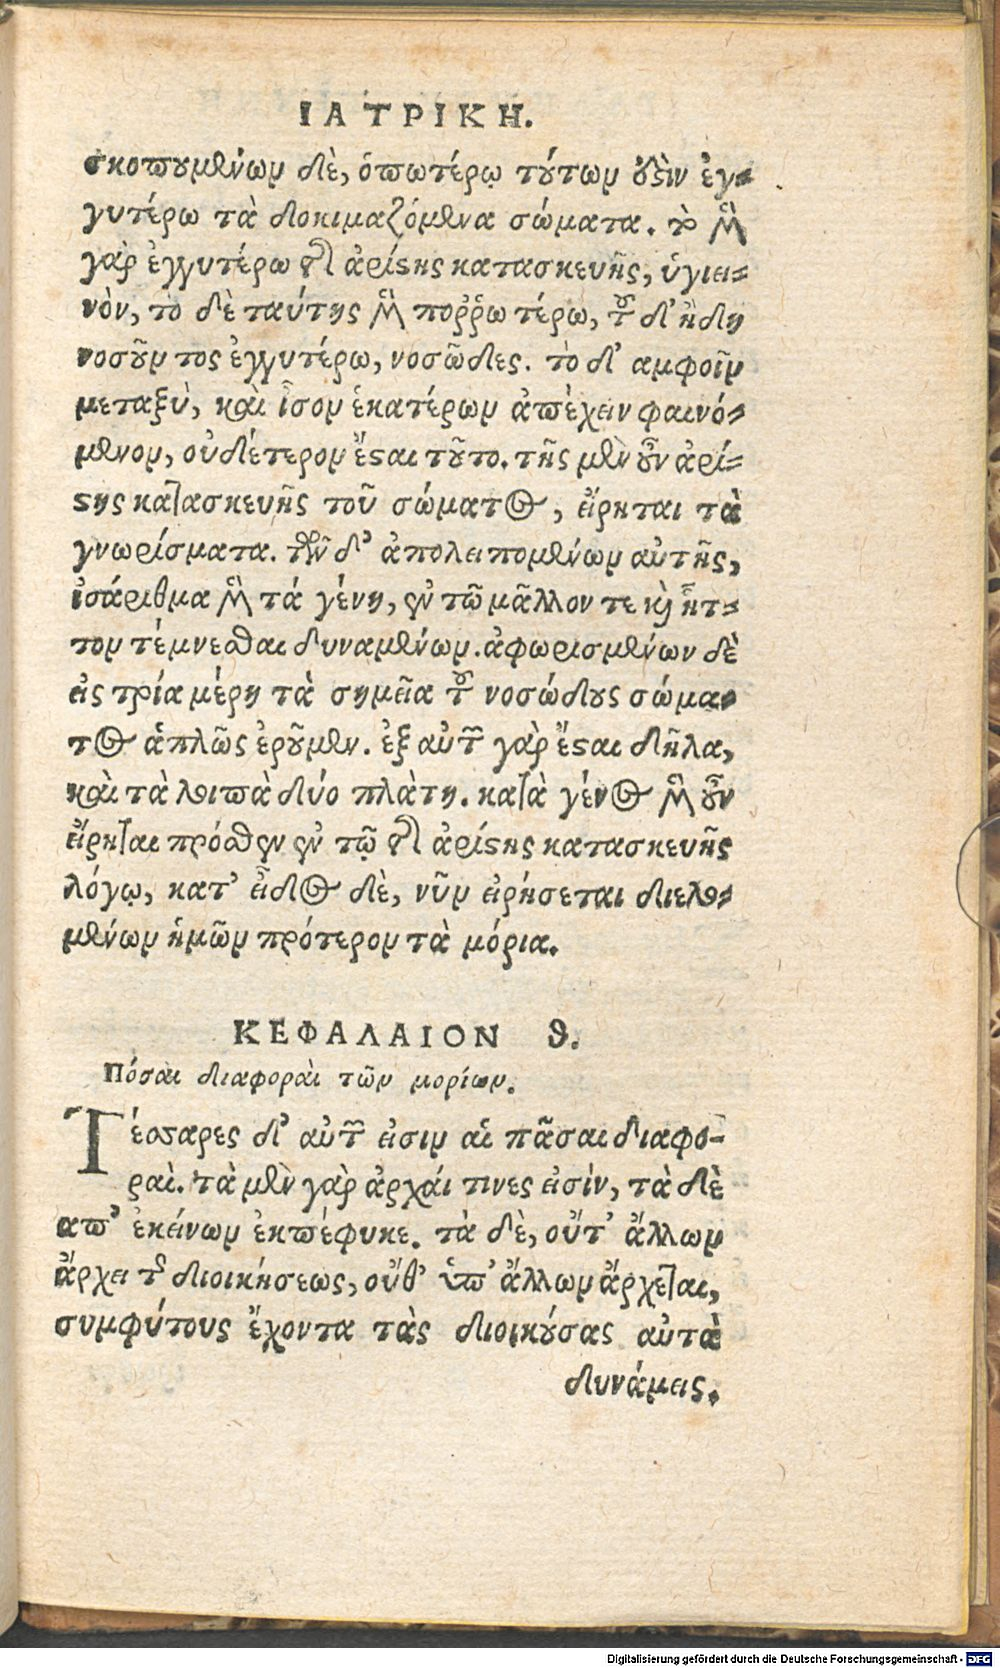 ΙΑΤΡΙΚΗ.
σκοπουμένων δὲ, ὁποτέρῳ τούτων ἐστὶν ἐγ-
γυτέρω τὰ δοκιμαζόμενα σώματα. τὸ μὲν
γὰρ ἐγγυτέρω τῆς ἀρίστης κατασκευῆς, ὑγιει-
νὸν, τὸ δὲ ταύτης μὲν ποῤῥωτέρω, τοῦ δ' ἤδη
νοσοῦντος ἐγγυτέρω, νοσῶδες. τὸ δ' αμφοῖν
μεταξὺ, καὶ ἶσον ἑκατέρων ἀπέχειν φαινό-
μενον, οὐδέτερον ἔσται τοῦτο. τῆς μὲν οὖν ἀρί-
στης κατασκευῆς τοῦ σώματος, εἴρηται τὰ
γνωρίσματα. τῶν δ' ἀπολειπομένων αὐτῆς,
ἰσάριθμα μὲν τά γένη, ἐν τῷ μᾶλλον τε καὶ ἧτ-
τον τέμνεσθαι δυναμένων. ἀφωρισμένων δὲ
εἰς τρία μέρη τὰ σημεῖα τοῦ νοσώδους σώμα-
τος ἁπλῶς ἐροῦμεν. ἐξ αὐτῶν γὰρ ἔσται δῆλα,
καὶ τὰ λοιπὰ δύο πλάτη. κατὰ γένος μὲν οὖν
εἴρηται πρόσθεν ἐν τῷ τῆς ἀρίστης κατασκευῆς
λόγῳ, κατ' εἶδος δὲ, νῦν εἰρήσεται διελο-
μένων ἡμῶν πρότερον τὰ μόρια.
ΚΕΦΑΛΑΙΟΝ θ.
Πόσαι διαφοραὶ τῶν μορίων.
Τέσσαρες δ' αὐτῶν εἰσιν αἱ πᾶσαι διαφο-
ραὶ. τὰ μὲν γὰρ ἀρχαί τινες εἰσίν, τὰ δὲ
απ' ἐκείνων ἐκπέφυκε. τὰ δὲ, οὔτ' ἄλλων
ἄρχει τῆς διοικήσεως, οὔθ' ὑπ' ἄλλων ἄρχεται,
συμφύτους ἔχοντα τὰς διοικούσας αὐτὰ
δυνάμεις.
Digitalisierung gefördert durch die Deutsche Forschungsgemeinschaft - DFG